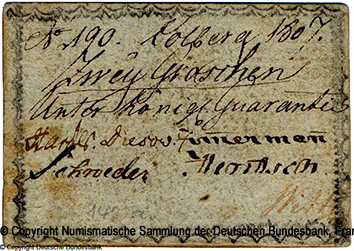 No 190. Colberg 1807.
Zwey Groschen
Unter Königs Guarantie
Dresow Zimmerman
Schroeder
© Copyright Numismatische Sammlung der Deutschen Bundesbank, Fra
© Deutsche Bundesbank